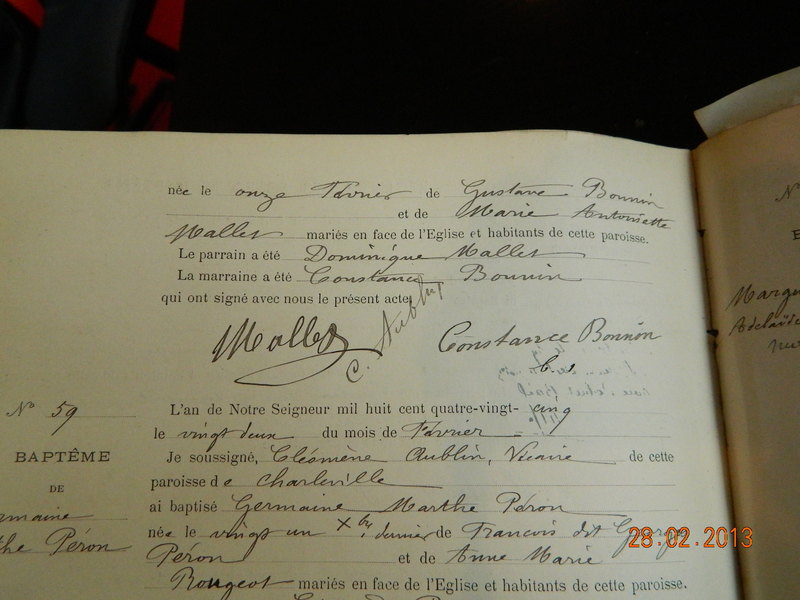 née le onze Février de Gustave Bonnin
et de Marie Antoinette
Mallet mariés en face de l'Eglise et habitants de cette paroisse.
Le parrain a été Dominique Mallet
La marraine a été Constance Bonnin
qui ont signé avec nous le présent acte.
Mallet C. Aublin Constance Bonnin
Nº 59
BAPTÊME
DE
maine
he Péron
L'an de Notre Seigneur mil huit cent quatre-vingt- cinq
le vingt deux du mois de Février
Je soussigné, Cléomène Aublin, Vicaire de cette
paroisse de Charleville
ai baptisé Germaine Marthe Péron
née le vingt un Xbre dernier de François dit George
Péron et de Anne Marie
Rougeot mariés en face de l'Eglise et habitants de cette paroisse.
Margu
Adelaïde
28.02.2013